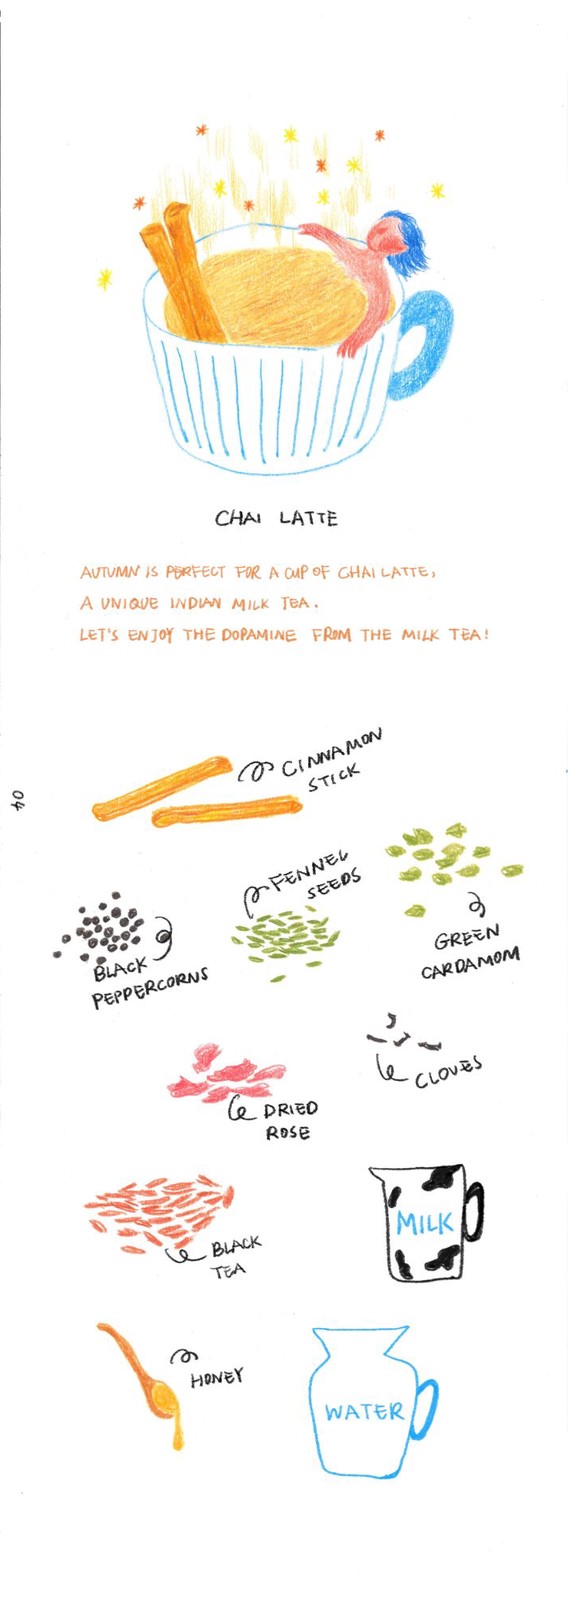 CHAI LATTE
AUTUMN IS PERFECT FOR A CUP OF CHAI LATTE,
A UNIQUE INDIAN MILK TEA.
LET'S ENJOY THE DOPAMINE FROM THE MILK TEA!
04
CINNAMON
STICK
FENNEL
SEEDS
GREEN
CARDAMOM
BLACK
PEPPERCORNS
CLOVES
DRIED
ROSE
MILK
BLACK
TEA
HONEY
WATER